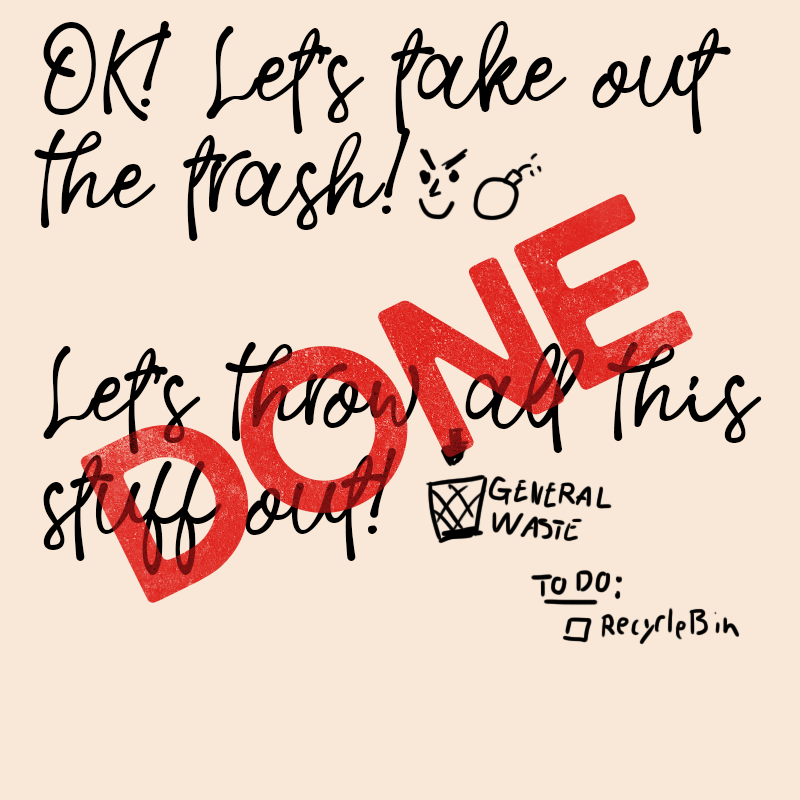 OK! Let's take out
the trash!
DONE
Let's throw all this
stuff out!
GENERAL
WASTE
TO DO:
RecycleBin